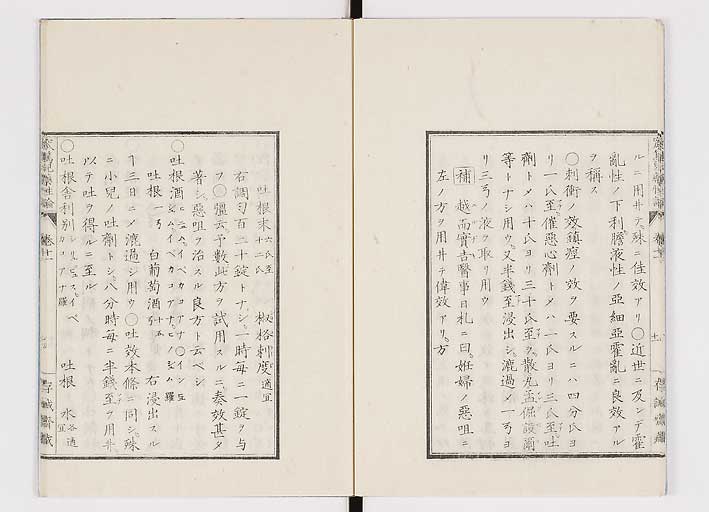 ルニ用井テ殊ニ佳效アリ〇近世ニ及ンデ霍
亂性ノ下利膽液性ノ亞細亞霍亂ニ良效アル
ヲ稱ス
〇刺衝ノ效鎮痙ノ效ヲ要スルニハ四分氏ヨ
リ一氏至催惡心劑トメハ一氏ヨリ三氏至吐
劑トメハ十氏ヨリ三十氏至ヲ散丸舐
等トナシ用ウ又半錢至浸出シ漉過メ一弓ヨ
リ三弓ノ液ヲ取リ用ウ
補 越而實吉醫事日札ニ曰妊婦ノ惡咀ニ
左ノ方ヲ用井テ偉效アリ方
吐根末 六氏至十二氏 椒格刺度 適宜
右調勻百二十錠トナシ一時每ニ一錠ヲ與
フ〇馧云予數此方ヲ試用スルニ奏效甚タ
著シ惡咀ヲ治スル良方ト云ベシ
〇吐根酒
吐根 一弓 白葡萄酒 十五弓 右浸出スル
十三日ニメ漉過シ用ウ〇吐效本條ニ同シ殊
ニ小兒ノ吐劑トシ八分時每ニ半錢至ヲ用井
以テ吐ヲ得ルニ至ル
〇吐根舍利別 吐根 水 各適宜